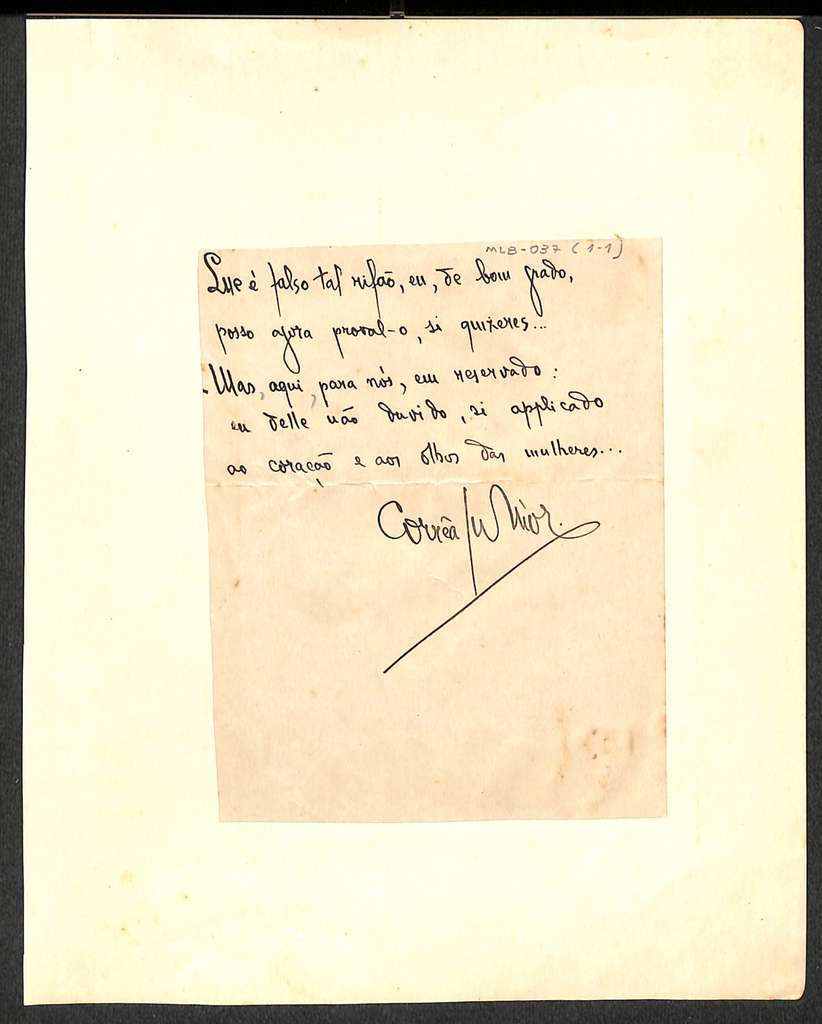 MLB-037 (1-1)
Que é falso tal rifão, eu, de bom grado,
posso agora proval-o, si quizeres...
-Mas, aqui, para nós, em reservado:
eu delle não duvido, si applicado
ao coração e aos olhos das mulheres...
Corrêa Junior.